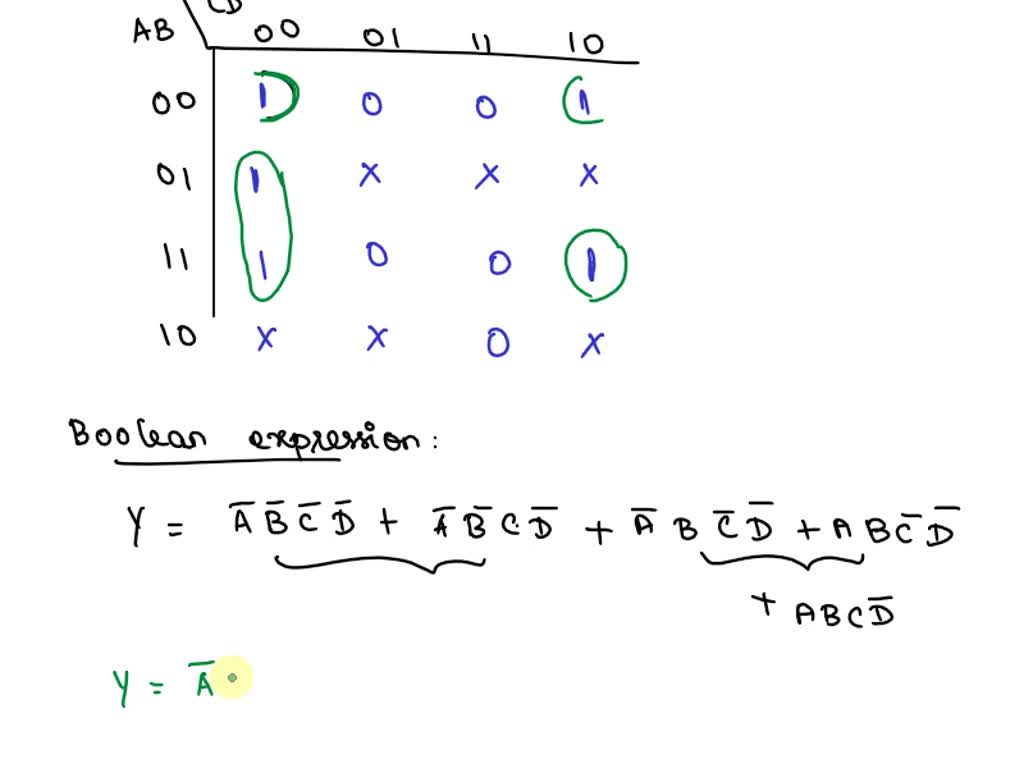 CD
AB 00 01 11 10
00 1 0 0 1
01 1 X X X
11 1 0 0 1
10 X X 0 X
Boolean expression:
Y = A̅ B̅ C̅ D̅ + A̅ B̅ C D̅ + A̅ B C̅ D̅ + A B C̅ D̅
+ A B C D̅
Y = A̅